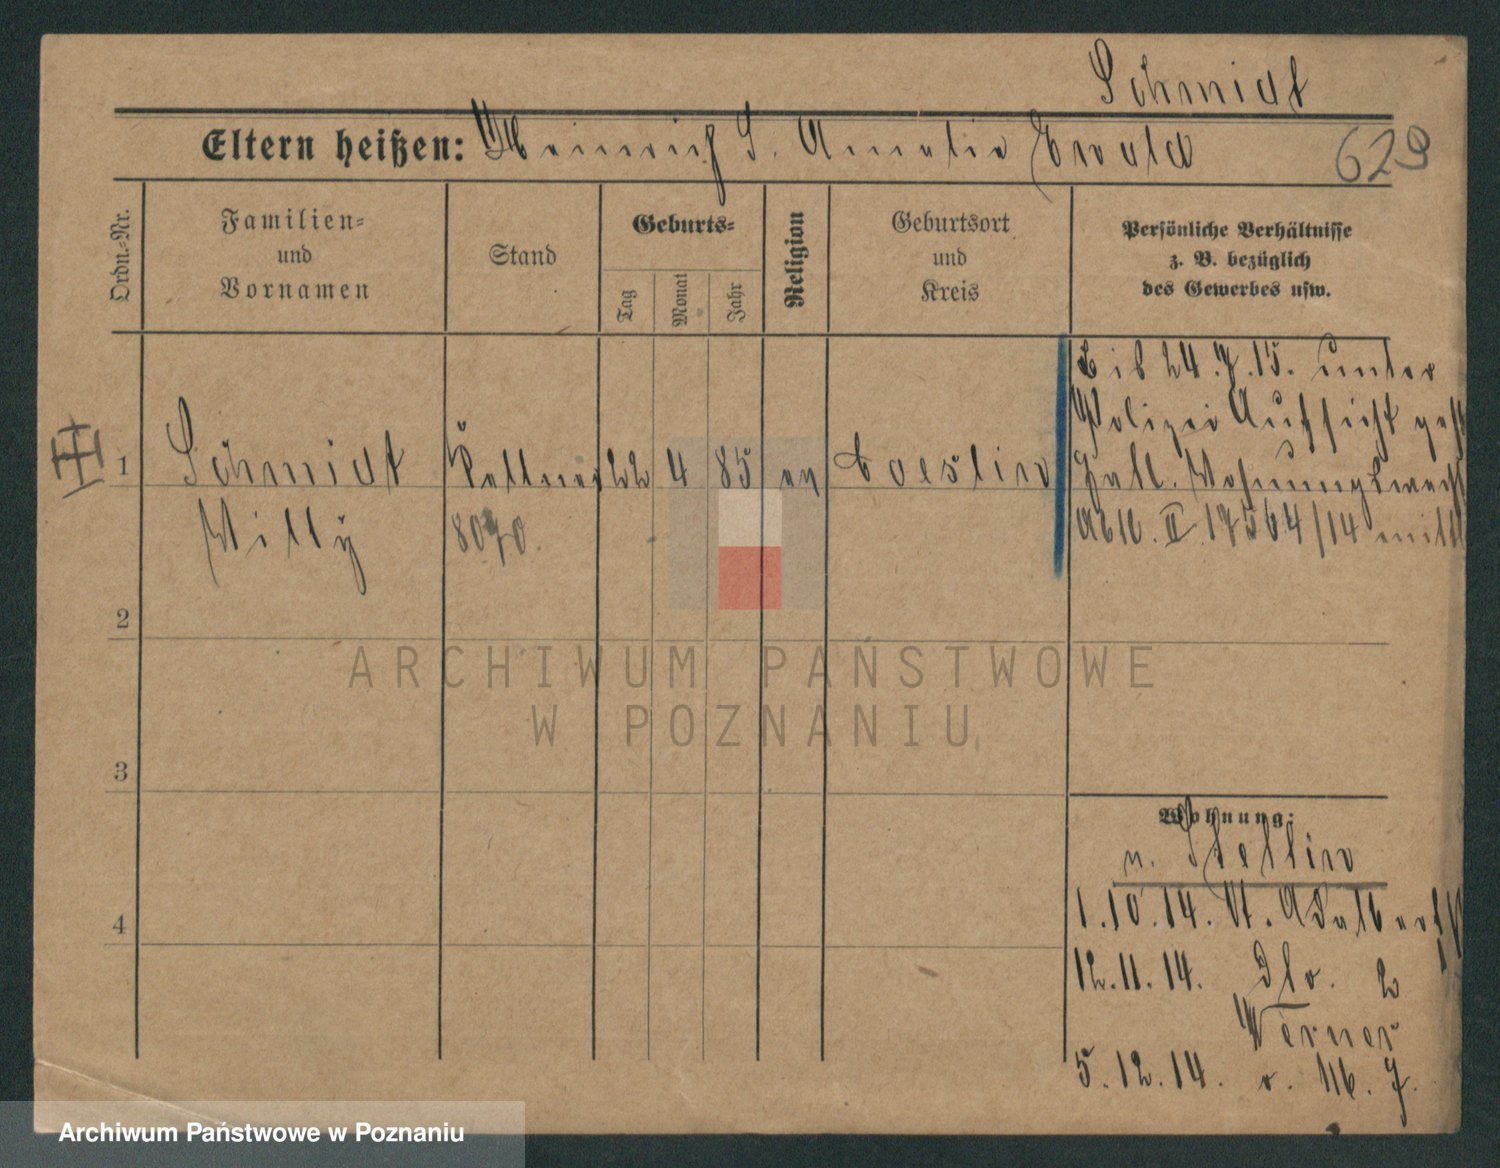 Schmidt
Eltern heißen: Heinrich S. Amalie Ewald
629
Ordn.-Nr.
Familien-
und
Vornamen
Stand
Geburts-
Tag
Monat
Jahr
Religion
Geburtsort
und
Kreis
Persönliche Verhältnisse
z. B. bezüglich
des Gewerbes usw.
Bis 24.7.15. unter
Polizei Aufsicht gest
1 Schmidt Kellner 22 4 85 ev Coeslin
Jed. Wohnungswechs
Willy 8070.
II 17564/14 mittl
2
3
4
Wohnung:
v. Stettin
1.10.14. St. Adalbert
12.11.14. Dlo. 2
Werner
5.12.14. v.
ARCHIWUM PAŃSTWOWE
W POZNANIU
Archiwum Państwowe w Poznaniu